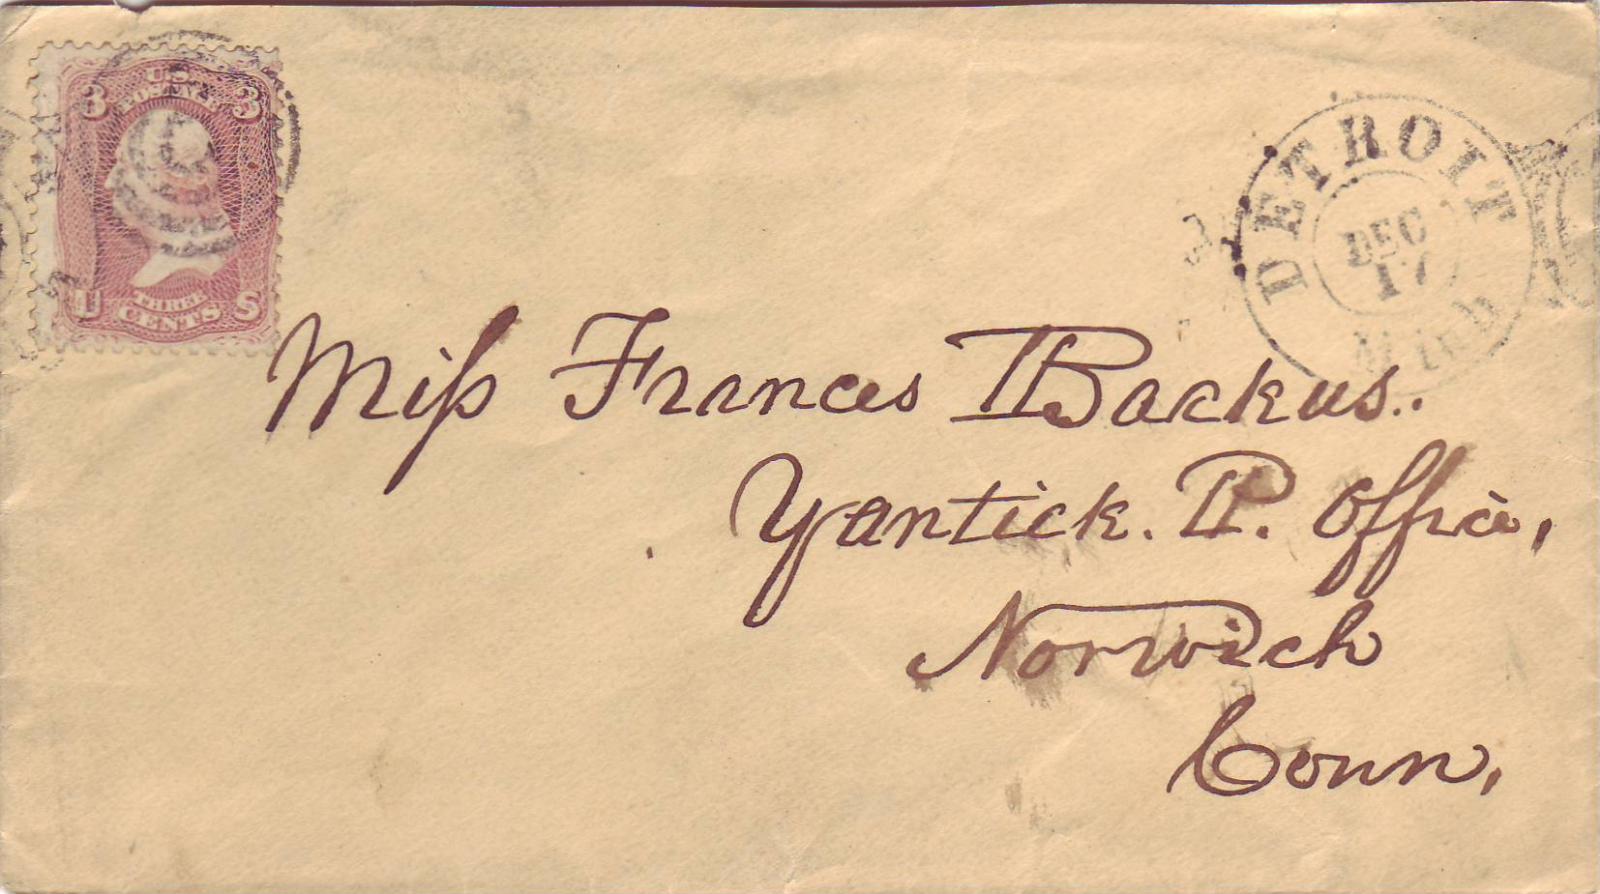 3 U.S. 3
POSTAGE
U THREE S
CENTS
DETROIT
DEC
17
Mich
Miſs Frances Backus.
Yantick. P. Office,
Norwich
Conn,